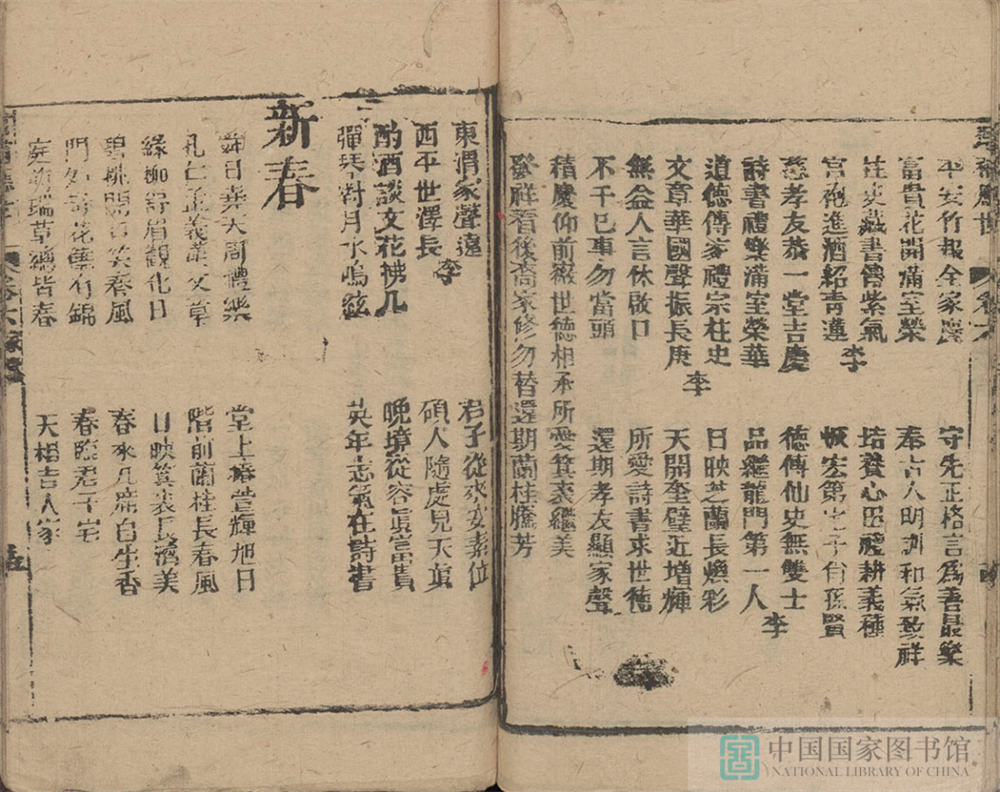 平安竹報全家慶
富貴花開滿室榮
柱史藏書傳紫氣
宮袍進酒紹青蓮
李
慈孝友恭一堂吉慶
詩書禮樂滿室榮華
道德傳家禮宗柱史
文章華國聲振長庚
李
無益人言休啟口
不干己事勿當頭
積慶仰前徽世德相承所愛箕裘繼美
發祥看後裔家修勿替還期蘭桂騰芳
守先正格言為善最樂
奉古人明訓和氣致祥
培養心田禮耕義種
恢宏第宇子肖孫賢
德傳仙史無雙士
品繼龍門第一人
李
日映芝蘭長煥彩
天開奎璧近增輝
所愛詩書求世德
還期孝友顯家聲
東渭家聲遠
西平世澤長
李
酌酒談文花拂几
彈琴對月水鳴絃
君子從來安素位
碩人隨處見天真
晚境從容真富貴
英年志氣在詩書
新春
舜日堯天周禮樂
孔仁孟義漢文章
綠柳舒眉觀化日
碧桃開口笑春風
門外奇花舊有錦
庭前瑞草總皆春
堂上椿萱輝旭日
階前蘭桂長春風
日映箕裘長濟美
春來几席自生香
春臨君子宅
天相吉人家
中国国家图书馆
NATIONAL LIBRARY OF CHINA